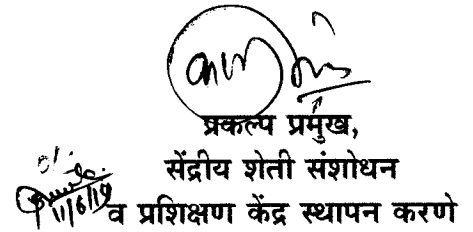 प्रकल्प प्रमुख,
सेंद्रीय शेती संशोधन
11/6/19
व प्रशिक्षण केंद्र स्थापन करणे